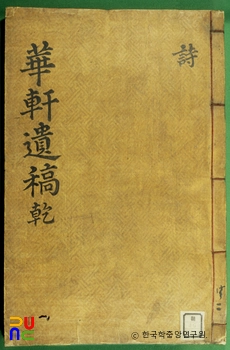 詩
華軒遺稿 乾
PUNE
© 한국학중앙연구원